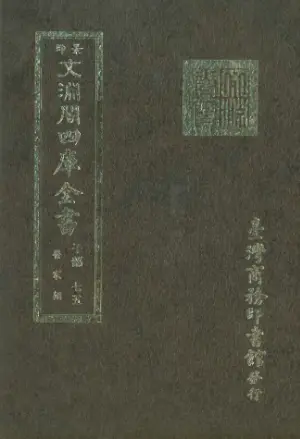 景印
文淵閣四庫全書
子部 七五
醫家類
臺灣商務印書館發行